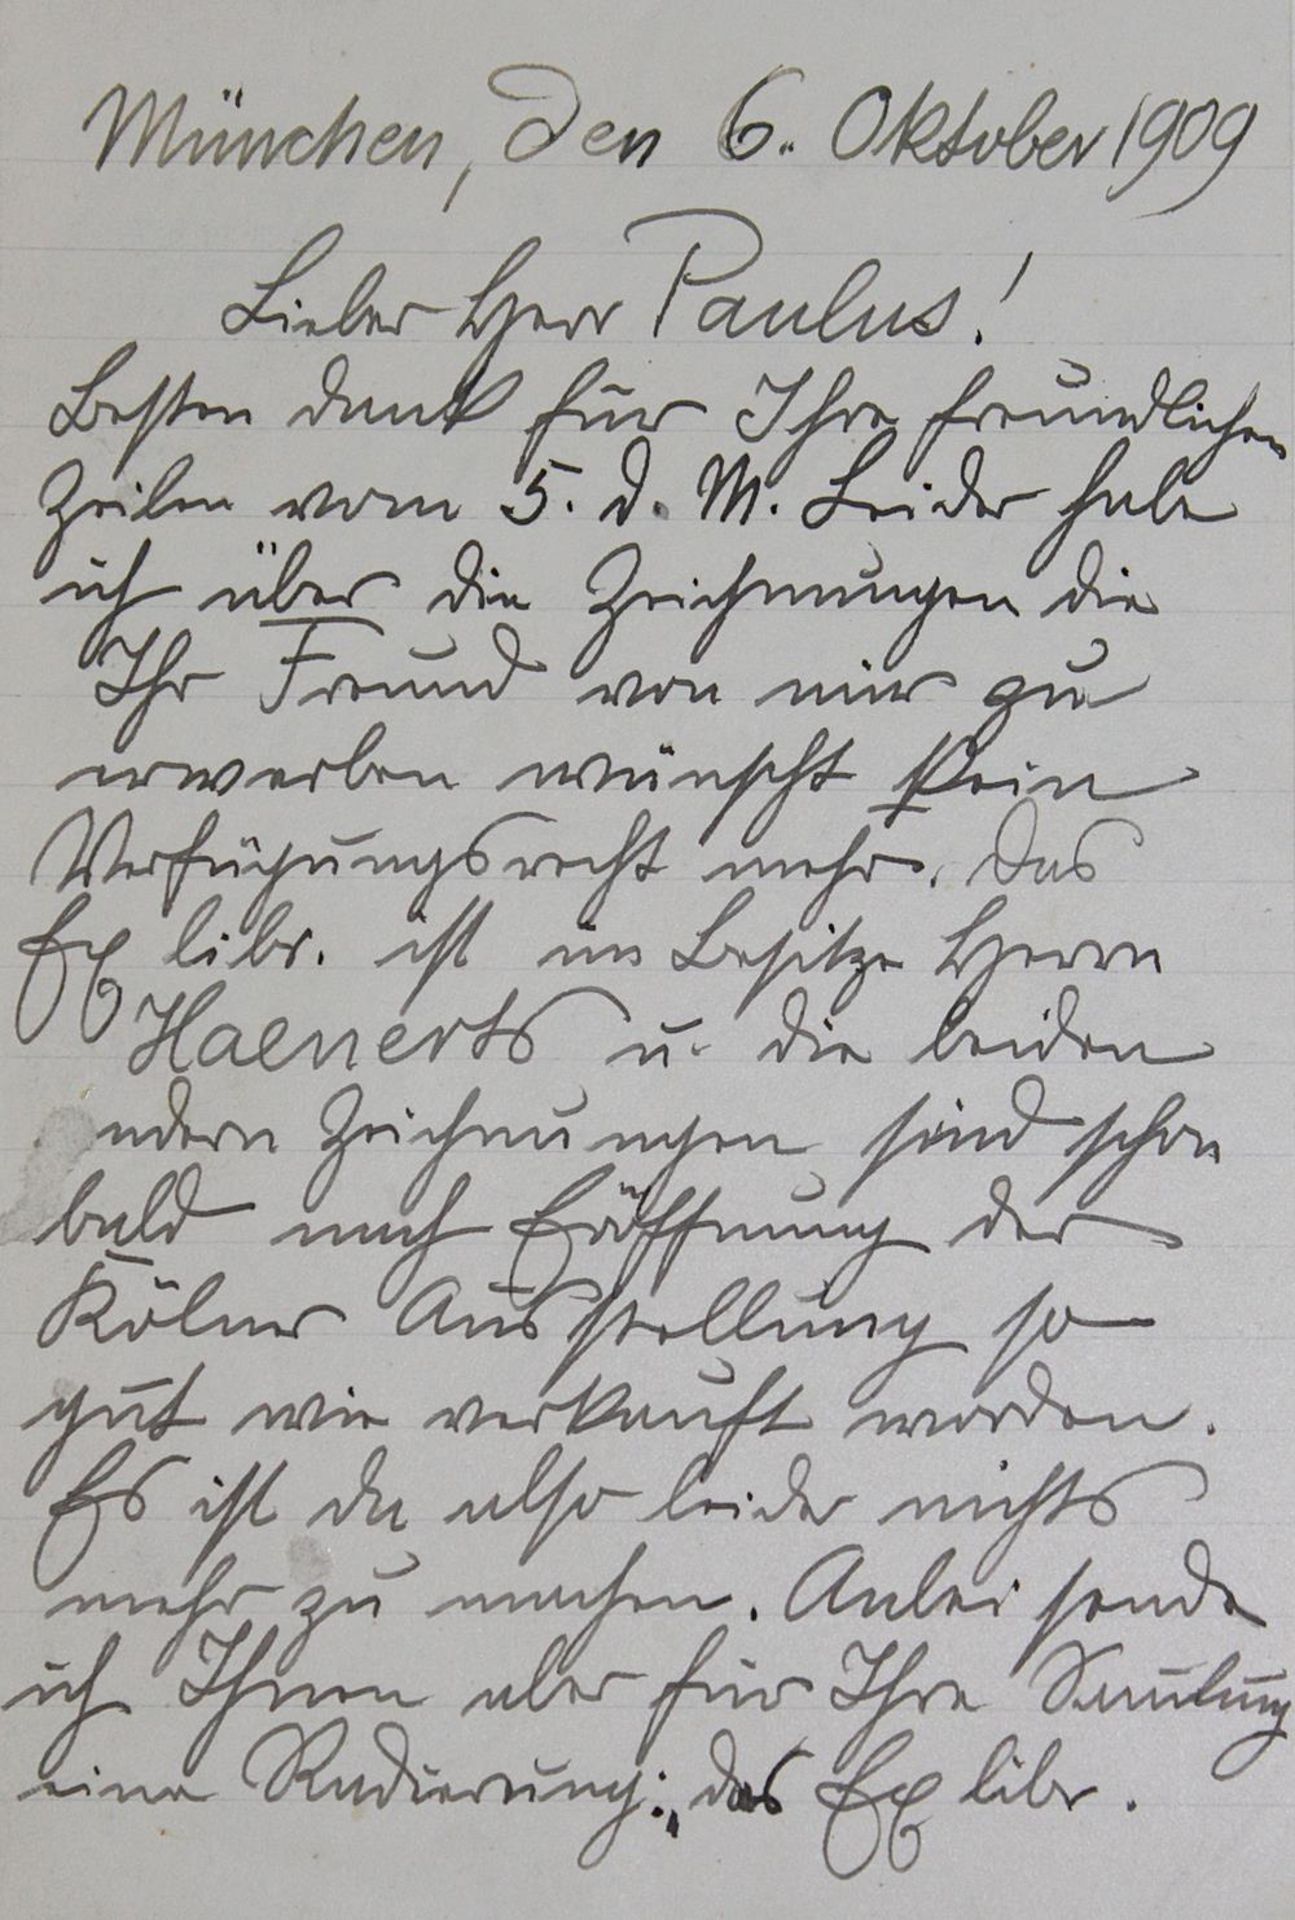 München, den 6. Oktober 1909
Lieber Herr Paulus!
Besten Dank für Ihre freundlichen
Zeilen vom 5. d. M. Leider habe
ich über die Zeichnungen die
Ihr Freund von mir zu
erwerben wünscht kein
Verfügungsrecht mehr. Das
Ex libr. ist im Besitze Herrn
Haenerts u. die beiden
andern Zeichnungen sind schon
bald nach Eröffnung der
Kölner Ausstellung so
gut wie verkauft worden.
Es ist da also leider nichts
mehr zu machen. Anbei sende
ich Ihnen aber für Ihre Samlung
eine Radierung: das Ex libr.